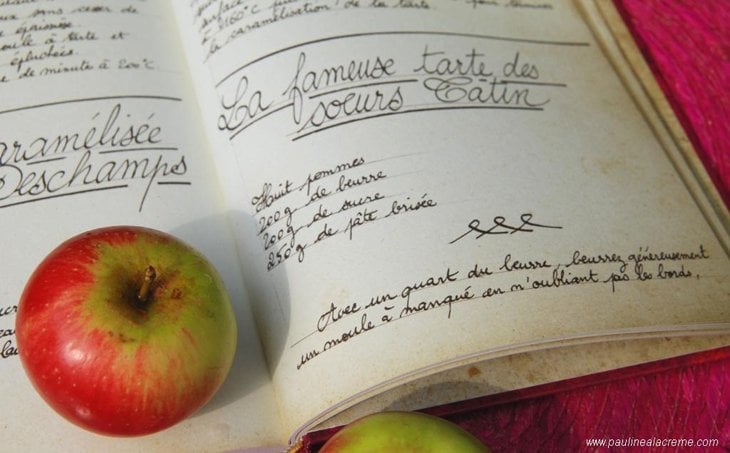 moule à tarte et
épluchées.
de minute à 200°C
aramélisée
Deschamps
surface
160°C pour
la caramélisation de la tarte.
La fameuse tarte des
sœurs Tatin
Huit pommes
200g de beurre
200g de sucre
250g de pâte brisée
Avec un quart du beurre, beurrez généreusement
un moule à manqué en n'oubliant pas les bords.
www.paulinealacreme.com